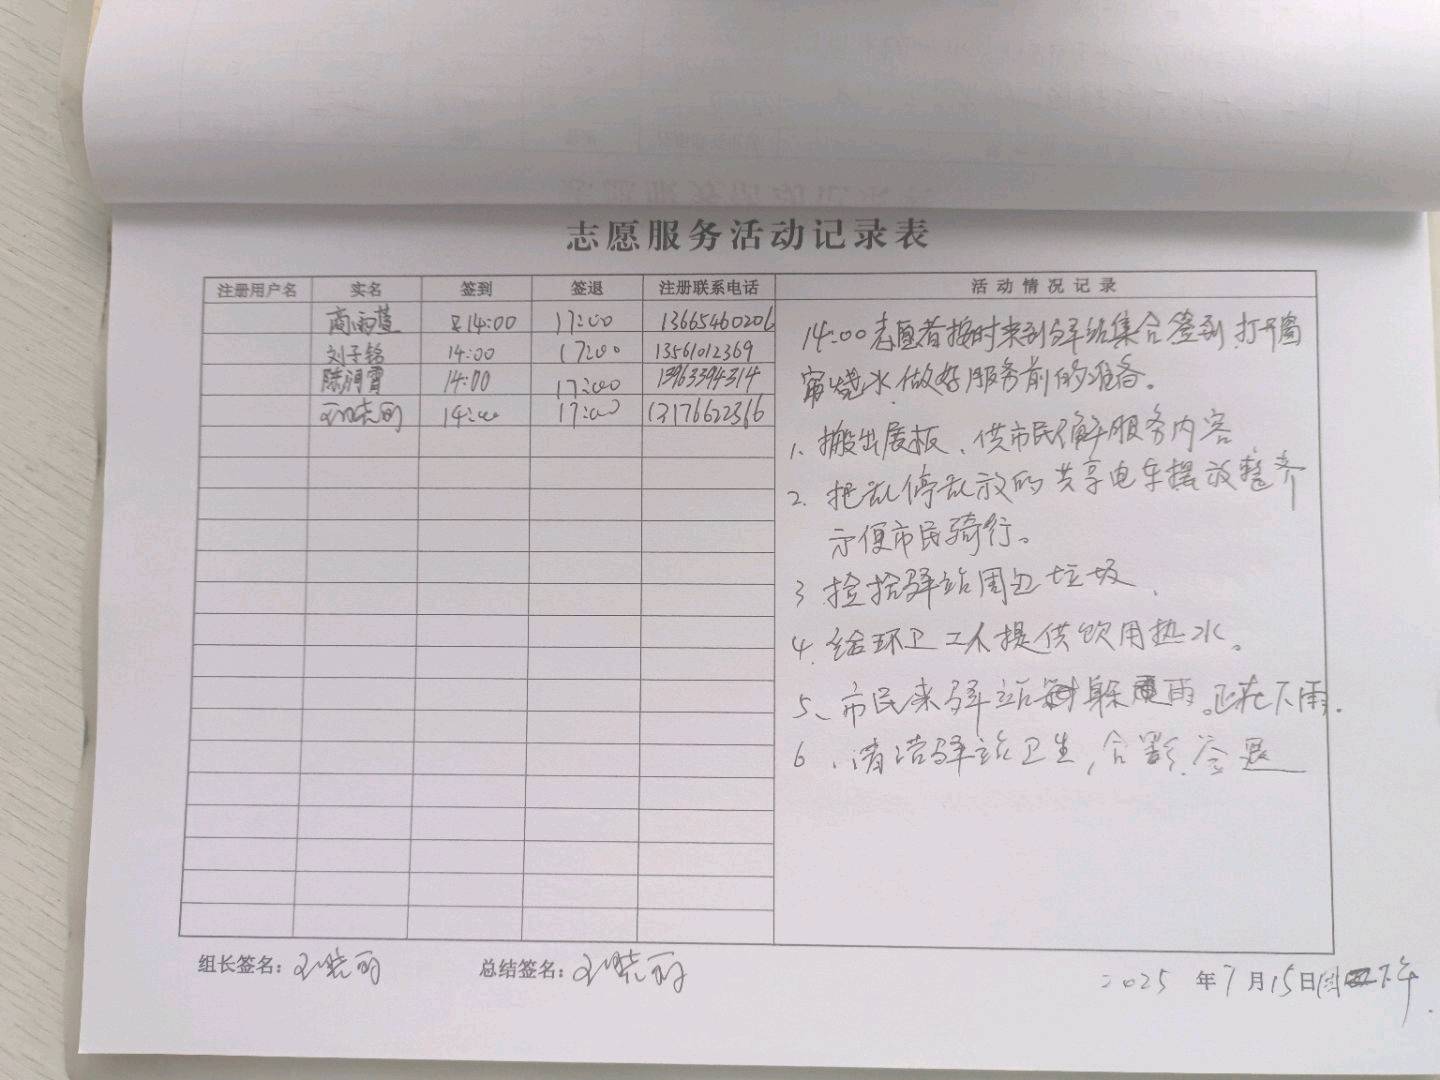 志愿服务活动记录表
注册用户名 实名 签到 签退 注册联系电话 活动情况记录
商雨慧 14:00 17:00 13665460206
刘子铭 14:00 17:00 13561012369
陈润霄 14:00 17:00 13963394314
14:00 17:00 13176622366
14:00志愿者按时来到驿站集合签到,打开窗
烧水,做好服务前的准备。
1、搬出展板、供市民了解服务内容
2、把乱停乱放的共享电车摆放整齐
示便市民骑行。
3 捡拾驿站周边垃圾、
4、给环卫工人提供饮用热水。
5、市民来驿站躲雨。正在下雨.
6、清洁驿站卫生,合影、签退
组长签名: 总结签名:
2025年7月15日 下午